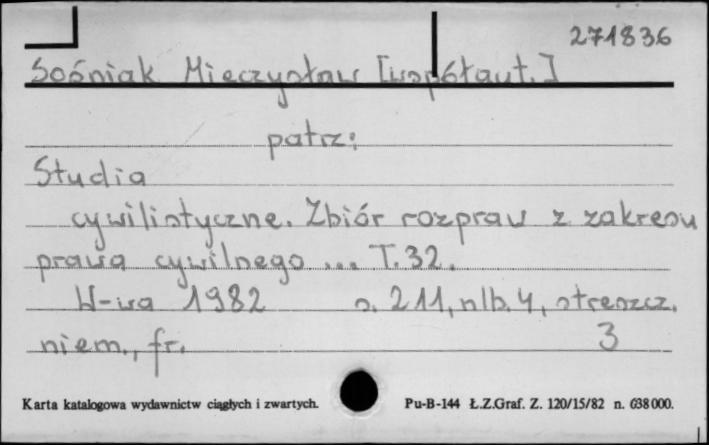 271836
Sośniak Mieczysław [współaut.]
patrz:
Studia
cywilistyczne. Zbiór rozpraw z zakresu
prawa cywilnego ... T.32.
W-wa 1982 s. 211, nlb. 4, streszcz.
niem., fr. 3
Karta katalogowa wydawnictw ciągłych i zwartych. Pu-B-144 Ł.Z.Graf. Z. 120/15/82 n. 638000.